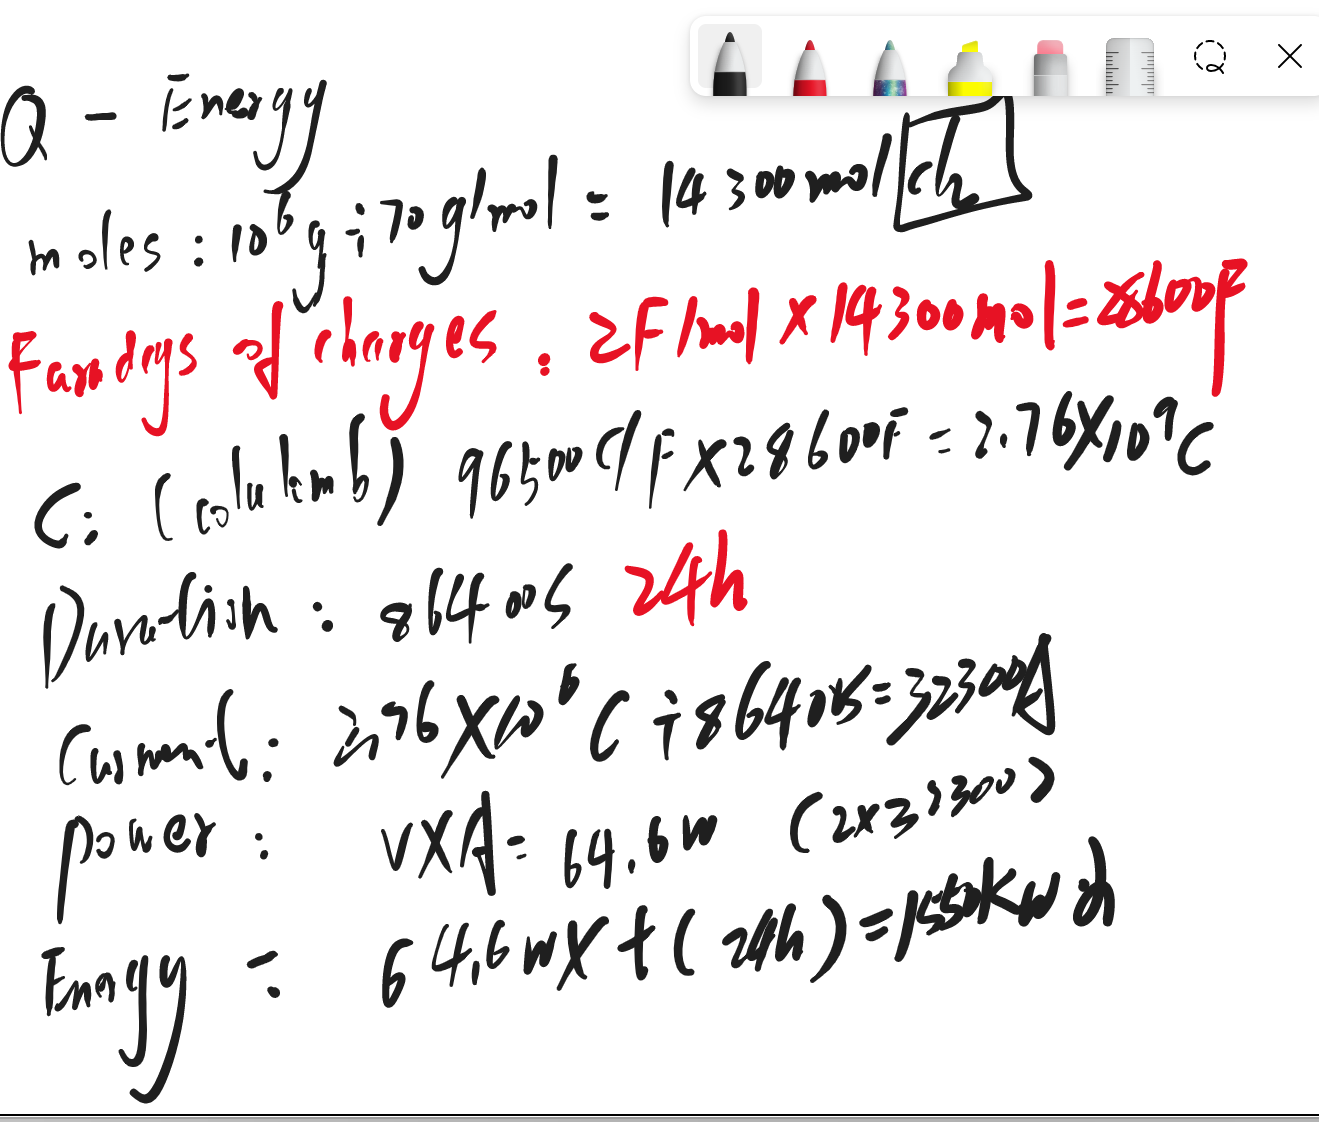 Q - Energy
moles : 10⁶g ÷ 70g/mol = 14300mol/ch
Faradays of charges : 2F/mol × 14300mol = 28600F
C: (coulumb) 96500C/F × 28600F = 2.76×10⁹C
Duration : 86400S 24h
Current: 2.76×10⁶C ÷ 86400S = 32300A
power : V×A = 64.6W (2×32300)
Energy = 64.6W × t (24h) = 1550KW